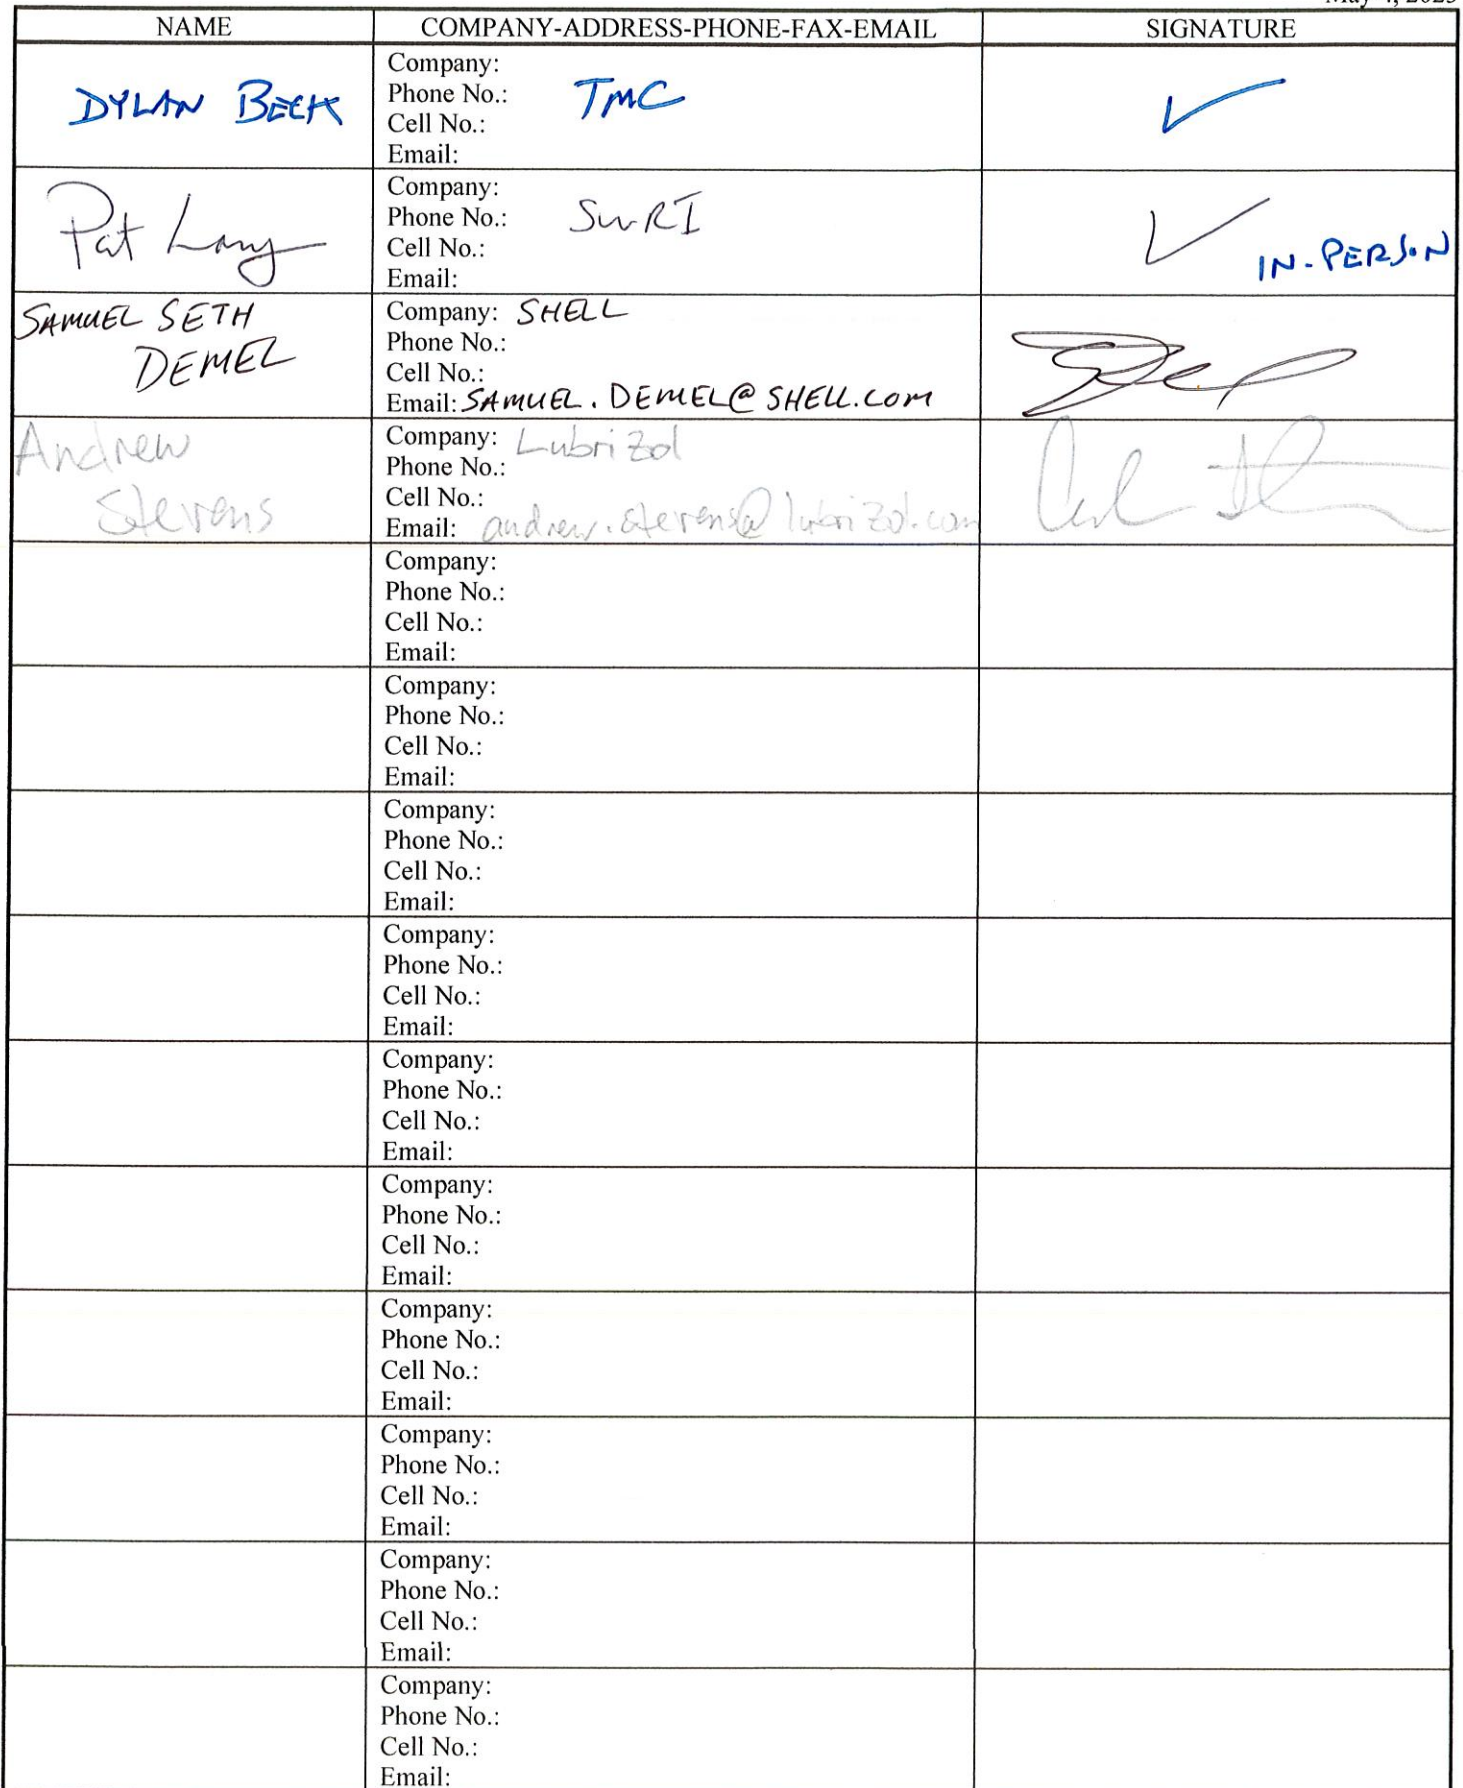 May 4, 2023
NAME COMPANY-ADDRESS-PHONE-FAX-EMAIL SIGNATURE
DYLAN BECK
Company:
Phone No.: TMC
Cell No.:
Email:
Pat Lang
Company:
Phone No.: SwRI
Cell No.:
Email:
IN-PERSON
SAMUEL SETH
DEMEL
Company: SHELL
Phone No.:
Cell No.:
Email: SAMUEL.DEMEL@SHELL.COM
Andrew
Stevens
Company: Lubrizol
Phone No.:
Cell No.:
Email: andrew.stevens@lubrizol.com
Company:
Phone No.:
Cell No.:
Email:
Company:
Phone No.:
Cell No.:
Email:
Company:
Phone No.:
Cell No.:
Email:
Company:
Phone No.:
Cell No.:
Email:
Company:
Phone No.:
Cell No.:
Email:
Company:
Phone No.:
Cell No.:
Email:
Company:
Phone No.:
Cell No.:
Email:
Company:
Phone No.:
Cell No.:
Email:
Company:
Phone No.:
Cell No.:
Email:
Company:
Phone No.:
Cell No.:
Email: